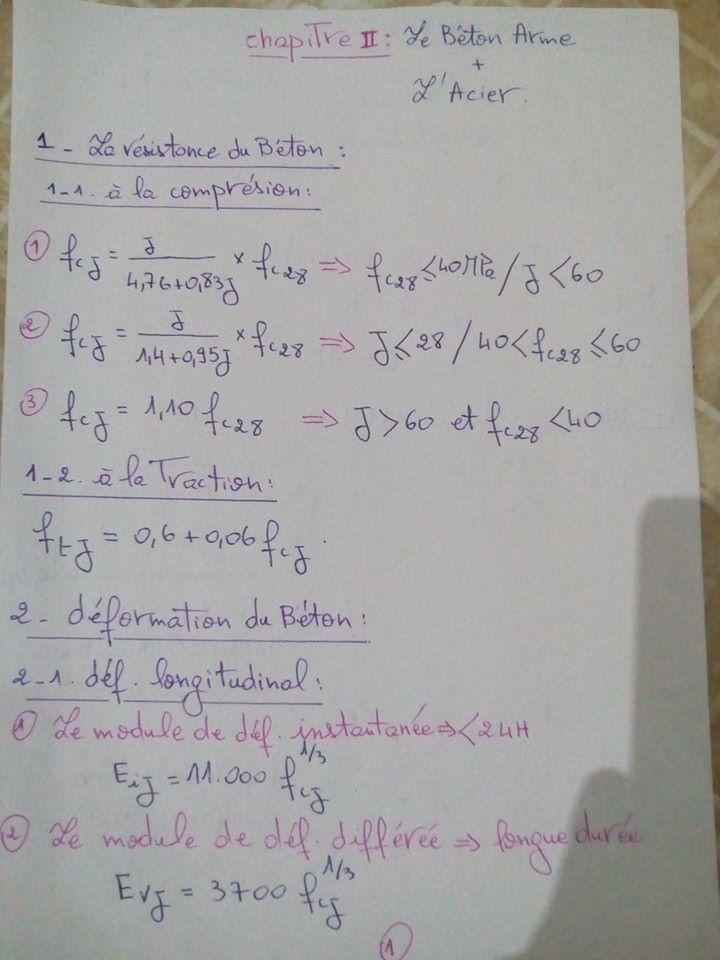 chapitre II : Le Béton Arme
+
L'Acier.
1 - La résistance du Béton :
1-1. à la comprésion :
① fcJ = J / (4,76+0,83J) × fc28 => fc28 ≤ 40 MPa / J < 60
② fcJ = J / (1,4+0,95J) × fc28 => J ≤ 28 / 40 < fc28 ≤ 60
③ fcJ = 1,10 fc28 => J > 60 et fc28 < 40
1-2. à la Traction :
ftJ = 0,6 + 0,06 fcJ.
2 - déformation du Béton :
2-1. déf. longitudinal :
① Le module de déf. instantanée => < 24H
EiJ = 11.000 fcJ^1/3
② Le module de déf. différée => longue durée
EvJ = 3700 fcJ^1/3
①